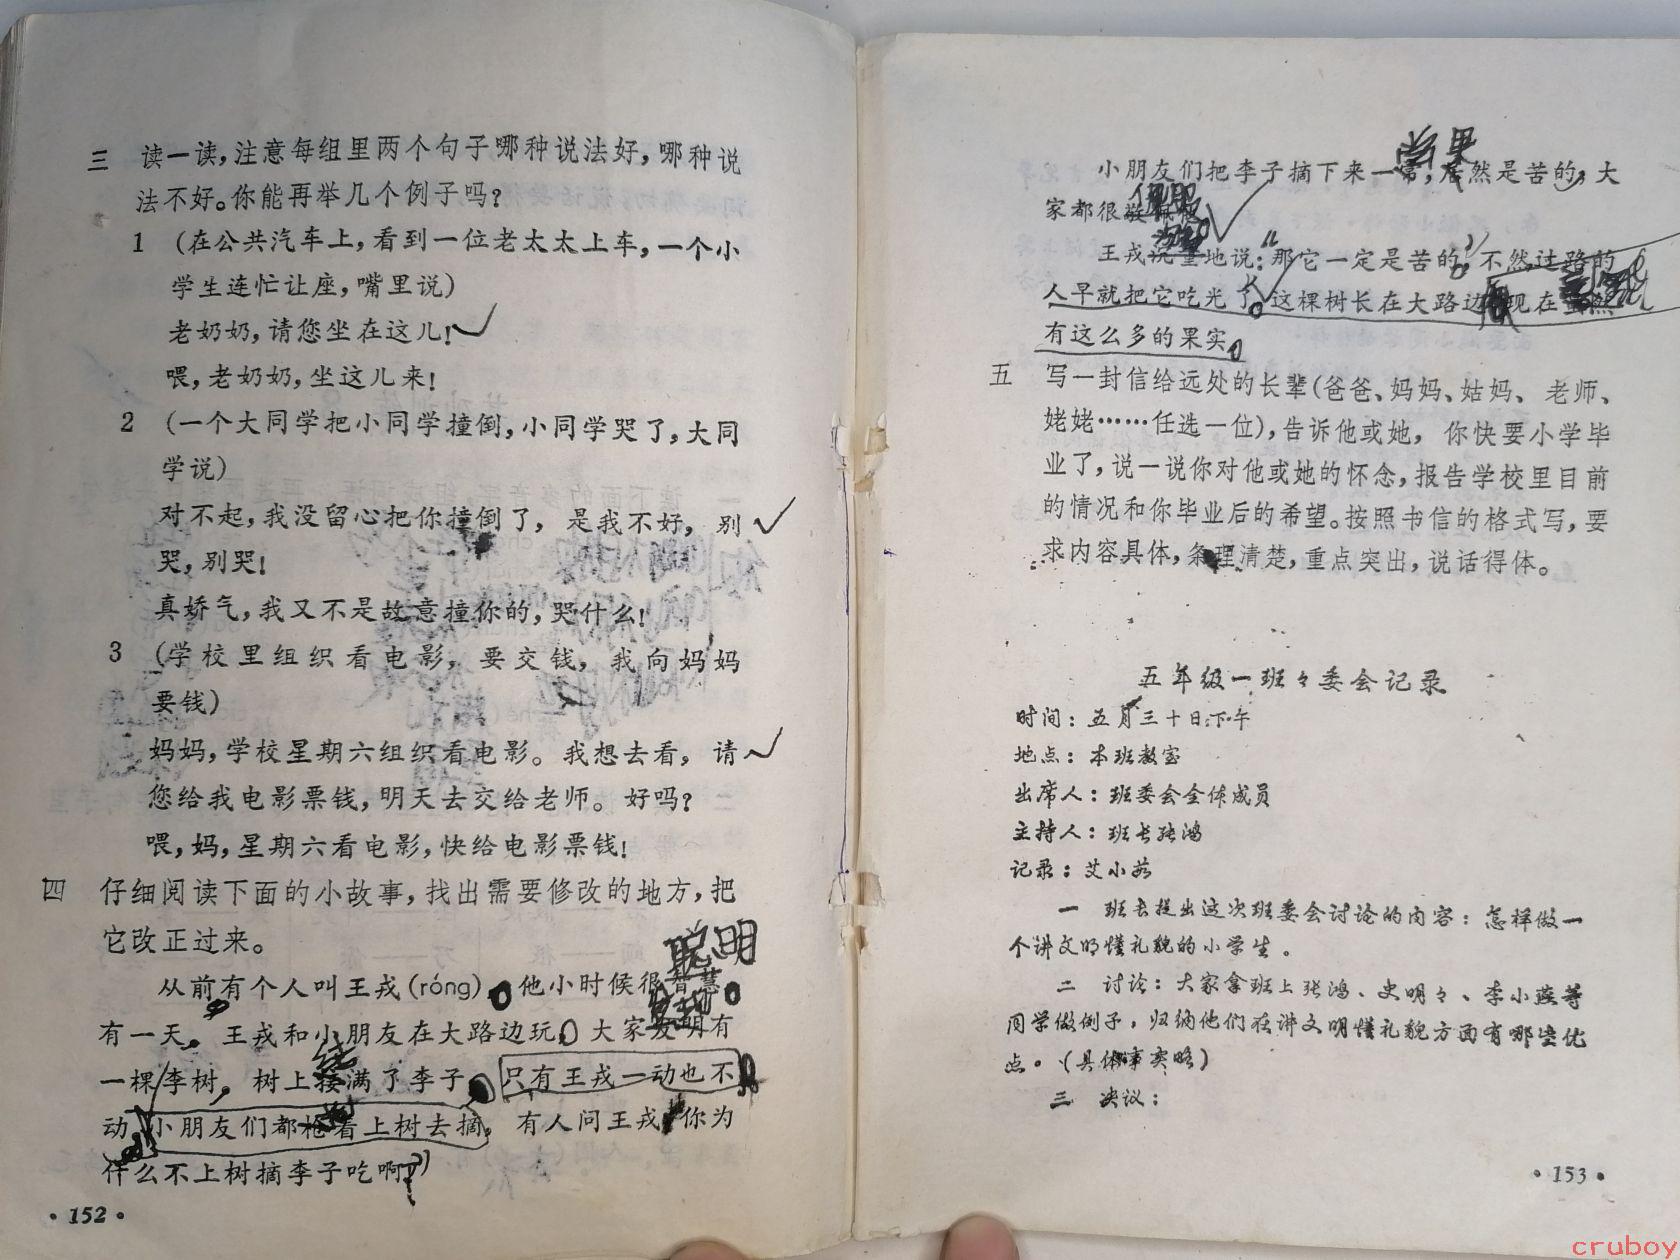 三 读一读,注意每组里两个句子哪种说法好,哪种说
法不好。你能再举几个例子吗?
1 (在公共汽车上,看到一位老太太上车,一个小
学生连忙让座,嘴里说)
老奶奶,请您坐在这儿!✓
喂,老奶奶,坐这儿来!
2 (一个大同学把小同学撞倒,小同学哭了,大同
学说)
对不起,我没留心把你撞倒了, 是我不好, 别✓
哭,别哭!
真娇气,我又不是故意撞你的,哭什么!
3 (学校里组织看电影, 要交钱, 我向妈妈
要钱)
妈妈,学校星期六组织看电影。我想去看, 请✓
您给我电影票钱,明天去交给老师。好吗?
喂,妈,星期六看电影,快给电影票钱!
四 仔细阅读下面的小故事,找出需要修改的地方,把
它改正过来。
聪明
从前有个人叫王戎(róng)。他小时候很智慧。
有一天,王戎和小朋友在大路边玩。大家发明有
结
一棵李树,树上接满了李子。只有王戎一动也不
动,小朋友们都抢着上树去摘, 有人问王戎,你为
什么不上树摘李子吃啊?”
·152·
尝 果
小朋友们把李子摘下来一常,居然是苦的,大
家都很
佩服
王戎地说:“那它一定是苦的。”不然过路的
人早就把它吃光了。这棵树长在大路边,现在虽然
有这么多的果实。
五 写一封信给远处的长辈(爸爸、妈妈、姑妈、老师、
姥姥……任选一位),告诉他或她, 你快要小学毕
业了,说一说你对他或她的怀念,报告学校里目前
的情况和你毕业后的希望。按照书信的格式写,要
求内容具体,条理清楚,重点突出,说话得体。
五年级一班々委会记录
时间:五月三十日下午
地点:本班教室
出席人:班委会全体成员
主持人:班长张鸿
记录:艾小苏
一 班长提出这次班委会讨论的内容:怎样做一
个讲文明懂礼貌的小学生。
二 讨论:大家拿班上张鸿、史明々、李小燕等
同学做例子,归纳他们在讲文明懂礼貌方面有哪些优
点。(具体事实略)
三 决议:
·153·
cruboy